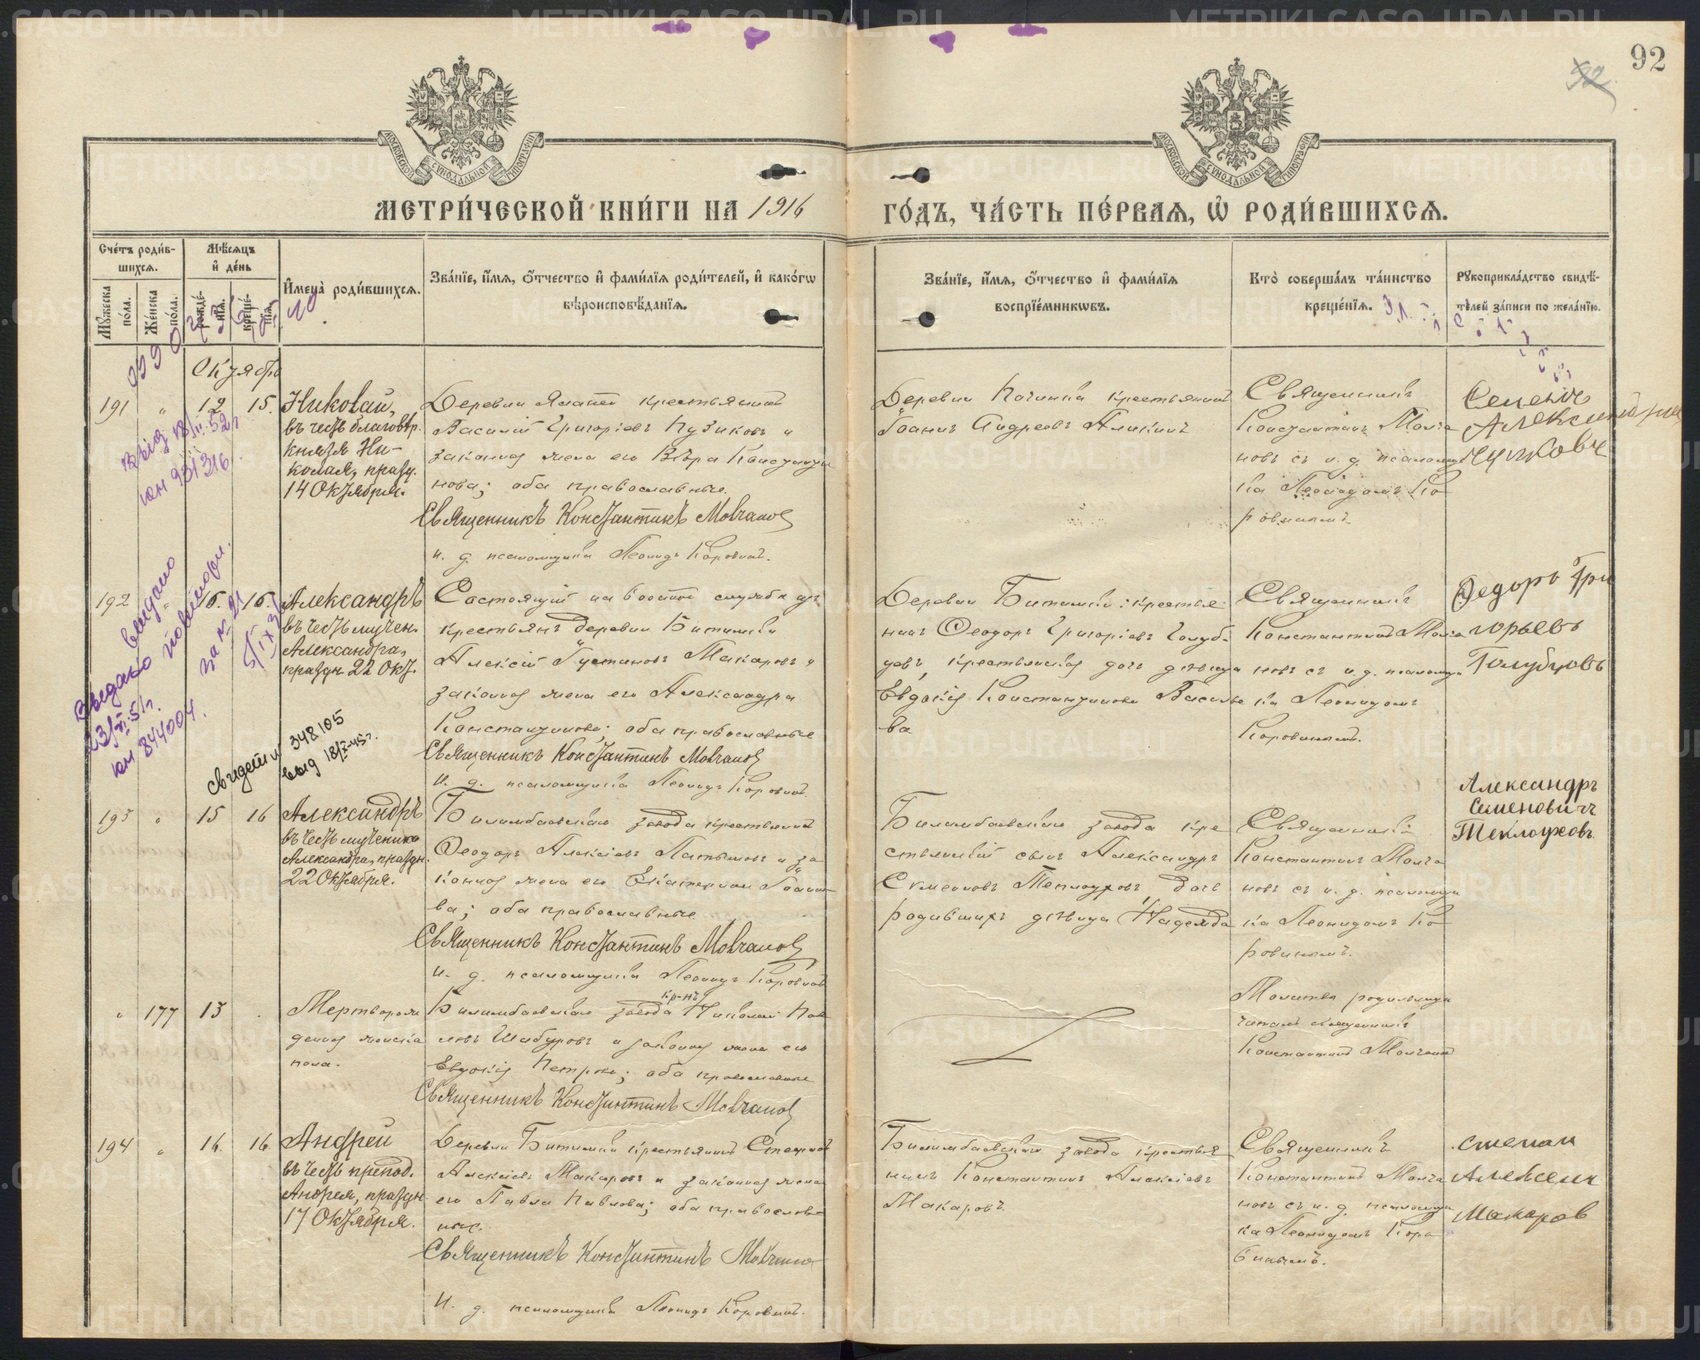 92
МОСКОВСКОЙ СѴНОДАЛЬНОЙ ТИПОГРАФІИ
МОСКОВСКОЙ СѴНОДАЛЬНОЙ ТИПОГРАФІИ
МЕТРИ́ЧЕСКОЙ КНИ́ГИ НА 1916
ГО́ДЪ, ЧА́СТЬ ПЕ́РВАЯ, Ѡ҆ РОДИ́ВШИХСЯ.
Сче́тъ роди́в-
шихся.
Мꙋ́жеска
по́ла.
Же́нска
по́ла.
Мѣ́сяцъ
и҆ де́нь
рожде́-
нїя.
креще́-
нїя.
И҆мена̀ роди́вшихся.
Зва́нїе, и҆́мя, ѻ҆́тчество и҆ фами́лїя роди́телей, и҆ како́гѡ
вѣроисповѣ́данїя.
Зва́нїе, и҆́мя, ѻ҆́тчество и҆ фами́лїя
воспрїе́мникѡвъ.
Кто̀ соверша́лъ та́инство
креще́нїя.
Рꙋкоприкла́дство свидѣ́-
телей за́писи по жела́нїю.
Октябрь
191 " 12 15.
Николай,
въ честь благовѣр.
князя Ни-
колая, празд.
14 Октября.
Деревни крестьянинъ
Василій Григорьевъ Пузиковъ и
законная жена его Вѣра Константи
нова; оба православные.
Священникъ Константинъ Молчанов
и. д. псаломщика Леонидъ Коровинъ.
Деревни крестьянинъ
Іоаннъ Андреевъ
Священникъ
Константинъ Молча
новъ съ и. д. псаломщи
ка Леонидомъ Ко
ровинымъ
Семенъ
Алексеевъ
192 16.
Александръ
въ честь мучен.
Александра,
праздн. 22 Окт.
Состоящій на военной службѣ изъ
крестьянъ деревни Битимки
Алексій Іустиновъ Макаровъ и
законная жена его Александра
Константинова; оба православные
Священникъ Константинъ Молчанов
и. д. псаломщика Леонидъ Коровинъ.
Деревни Битимки: крестья
нинъ Ѳеодоръ Григорьевъ Голуб-
цовъ, крестьянская дочь дѣвица
Евдокія Константинова Василье
ва
Священникъ
Константинъ Молча
новъ съ и. д. псаломщи
ка Леонидомъ
Коровинымъ.
Федоръ Гри
горьевъ
Голубцовъ
выдано
повторн.
Выдано
юн 844004.
свидет. 348105
выд
193 " 15 16
Александръ
въ честь мученика
Александра, праздн.
22 Октября.
Билимбаевскаго завода крестьянинъ
Ѳеодоръ Алексіевъ Латышовъ и за
конная жена его Екатерина Іоанно
ва; оба православные
Священникъ Константинъ Молчановъ
и. д. псаломщика Леонидъ Коровинъ
Билимбаевскаго завода кре
стьянскій сынъ Александръ
Семеновъ Теплоуховъ, дочь
родившихъ дѣвица Надежда
Священникъ
Константинъ Молча
новъ съ и. д. псаломщи
ка Леонидомъ Ко
ровинымъ.
Александръ
Семеновичъ
Теплоуховъ
" 177 13
Мертворож
денная женска
пола.
Билимбаевскаго завода кр-нъ Николай Пав
ловъ Шабуровъ и законная жена его
Евдокія Петрова; оба православные
Священникъ Константинъ Молчанов
Молитву родильницѣ
читалъ священникъ
Константинъ Молчановъ
194 " 14. 16
Андрей
въ честь препод.
Андрея, праздн
17 Октября.
Деревни Битимки крестьянинъ Степанъ
Алексіевъ Макаровъ и законная жена
его Павла Павлова; оба православ
ные.
Священникъ Константинъ Молчанов
и. д. псаломщика Леонидъ Коровинъ.
Билимбаевскаго завода крестья
нинъ Константинъ Алексіевъ
Макаровъ
Священникъ
Константинъ Молча
новъ съ и. д. псаломщи
ка Леонидомъ Коро
винымъ.
Степан
Алексеич
Макаров
METRIKI.GASO-URAL.RU